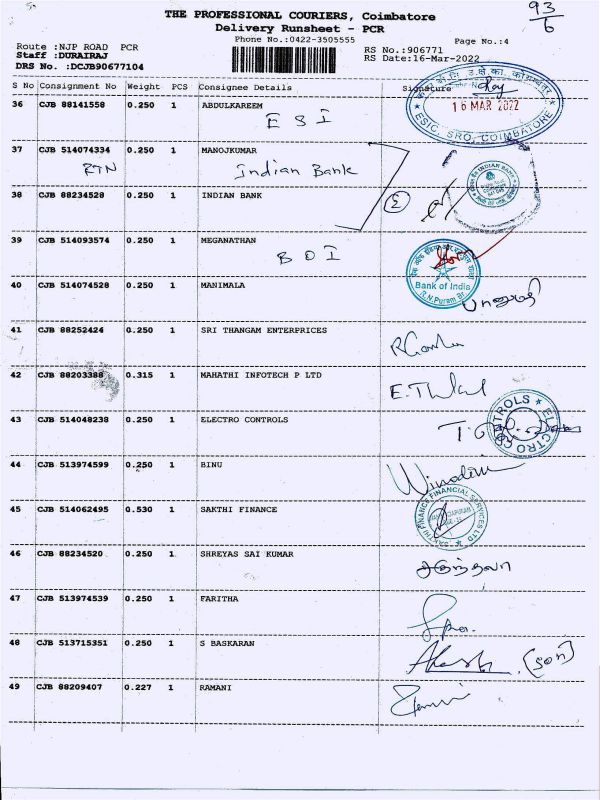 93/6
THE PROFESSIONAL COURIERS, Coimbatore
Delivery Runsheet - PCR
Phone No.:0422-3505555
Page No.:4
Route :NJP ROAD PCR
Staff :DURAIRAJ
DRS No. :DCJB90677104
RS No.:906771
RS Date:16-Mar-2022
S No Consignment No Weight PCS Consignee Details Signature
36 CJB 88141558 0.250 1 ABDULKAREEM
E S I
16 MAR 2022
ESIC, SRO, COIMBATORE
37 CJB 514074334 0.250 1 MANOJKUMAR
RTN Indian Bank
INDIAN BANK
38 CJB 88234528 0.250 1 INDIAN BANK
39 CJB 514093574 0.250 1 MEGANATHAN
B O I
Bank of India
R.N.Puram Br.
40 CJB 514074528 0.250 1 MANIMALA
41 CJB 88252424 0.250 1 SRI THANGAM ENTERPRICES
42 CJB 88203388 0.315 1 MAHATHI INFOTECH P LTD
43 CJB 514048238 0.250 1 ELECTRO CONTROLS
ELECTRO CONTROLS
44 CJB 513974599 0.250 1 BINU
45 CJB 514062495 0.530 1 SAKTHI FINANCE
SAKTHI FINANCE FINANCIAL SERVICES LTD
46 CJB 88234520 0.250 1 SHREYAS SAI KUMAR
சகுந்தலா
47 CJB 513974539 0.250 1 FARITHA
48 CJB 513715351 0.250 1 S BASKARAN
(son)
49 CJB 88209407 0.227 1 RAMANI